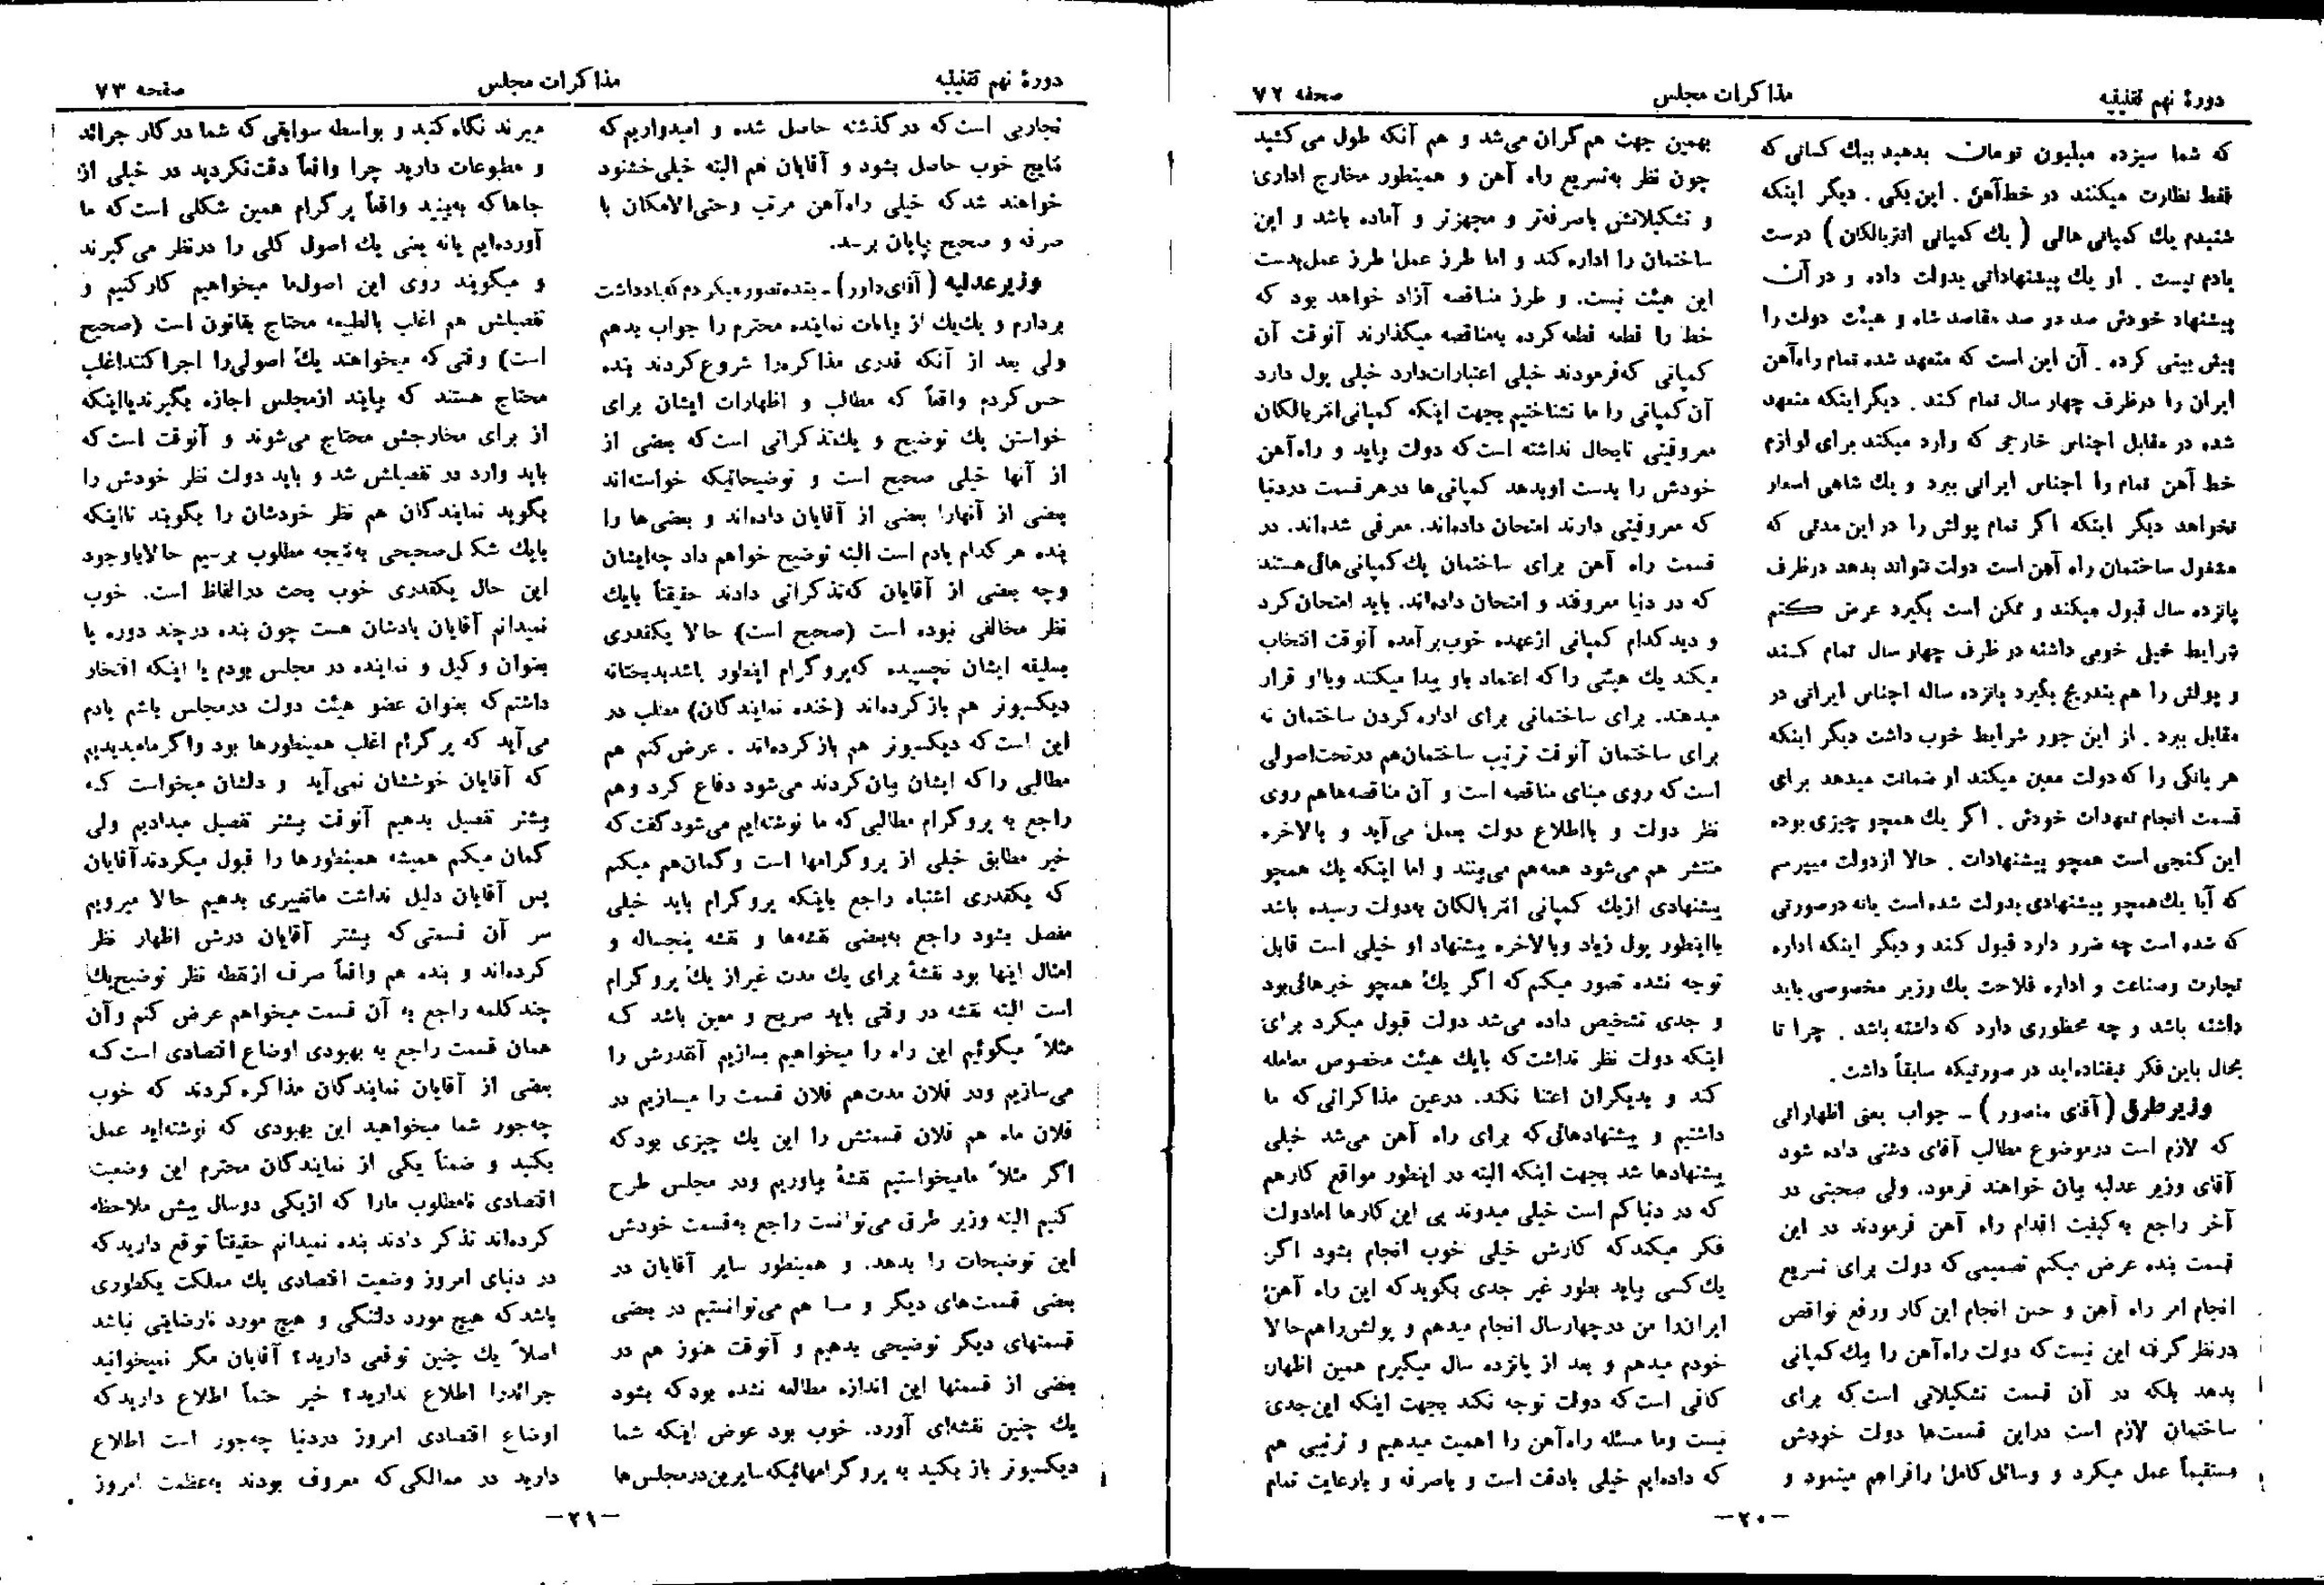 دورهٔ نهم تقنینیه
مذاکرات مجلس
صحفه ۷۲
که شما سیزده میلیون تومان بدهید بیك کسانی که
فقط نظارت میکنند در خط‌آهن . این یکی . دیگر اینکه
شنیدم یك کمپانی هائی ( یك کمپانی انتربالکان ) درست
یادم نیست . او یك پیشنهاداتی بدولت داده و در آن
پیشنهاد خودش صد در صد مقاصد شاه و هیئت دولت را
پیش بینی کرده . آن این است که متعهد شده تمام راه‌آهن
ایران را درظرف چهار سال تمام کند . دیگر اینکه متعهد
شده در مقابل اجناس خارجی که وارد میکند برای لوازم
خط آهن تمام را اجناس ایرانی ببرد و یك شاهی اسعار
نخواهد دیگر اینکه اگر تمام پولش را در این مدتی که
مشغول ساختمان راه آهن است دولت نتواند بدهد درظرف
پانزده سال قبول میکند و ممکن است بگیرد عرض کنم
شرایط خیلی خوبی داشته در ظرف چهار سال تمام کند
و پولش را هم بتدریج بگیرد پانزده ساله اجناس ایرانی در
مقابل ببرد . از این جور شرایط خوب داشت دیگر اینکه
هر بانکی را که دولت معین میکند او ضمانت میدهد برای
قسمت انجام تعهدات خودش . اگر یك همچو چیزی بوده
این گنجی است همچو پیشنهادات . حالا از دولت میپرسم
که آیا یك همچو پیشنهادی بدولت شده است یانه درصورتی
که شده است چه ضرر دارد قبول کند و دیگر اینکه اداره
تجارت وصناعت و اداره فلاحت یك وزیر مخصوصی باید
داشته باشد و چه محظوری دارد که داشته باشد . چرا تا
بحال باین فکر نیفتاده‌اید در صورتیکه سابقاً داشت .
وزیر طرق (آقای منصور ) ــ جواب بعضی اظهاراتی
که لازم است درموضوع مطالب آقای دشتی داده شود
آقای وزیر عدلیه بیان خواهند فرمود. ولی صحبتی در
آخر راجع به‌کیفیت اقدام راه آهن فرمودند در این
قسمت بنده عرض میکنم تصمیمی که دولت برای تسریع
انجام امر راه آهن و حسن انجام این کار ورفع نواقص
درنظر گرفته این نیست که دولت راه‌آهن را بیك کمپانی
بدهد بلکه در آن قسمت تشکیلاتی است که برای
ساختمان لازم است دراین قسمت‌ها دولت خودش
مستقیماً عمل میکرد و وسائل کامل را فراهم مینمود و
بهمین جهت هم گران می‌شد و هم آنکه طول می کشید
چون نظر به‌تسریع راه آهن و همینطور مخارج اداری
و تشکیلاتش باصرفه‌تر و مجهزتر و آماده باشد و این
ساختمان را اداره کند و اما طرز عمل طرز عمل بدست
این هیئت نیست. و طرز مناقصه آزاد خواهد بود که
خط را قطعه قطعه کرده به‌مناقصه میگذارند آنوقت آن
کمپانی که‌فرمودند خیلی اعتبارات‌دارد خیلی پول دارد
آن کمپانی را ما نشناختیم بجهت اینکه کمپانی انتربالکان
معروفیتی تابحال نداشته است که دولت بیاید و راه‌آهن
خودش را بدست اوبدهد کمپانی‌ها درهر قسمت دردنیا
که معروفیتی دارند امتحان داده‌اند. معرفی شده‌اند. در
قسمت راه آهن برای ساختمان یك کمپانی‌هائی هستند
که در دنیا معروفند و امتحان داده‌اند. باید امتحان کرد
و دید کدام کمپانی ازعهده خوب برآمده آنوقت انتخاب
میکند یك هیئتی را که اعتماد باو پیدا میکنند وبااو قرار
میدهند. برای ساختمانی برای اداره کردن ساختمان نه
برای ساختمان آنوقت ترتیب ساختمان‌هم درتحت‌اصولی
است که روی مبنای مناقصه است و آن مناقصه‌هاهم روی
نظر دولت و بااطلاع دولت بعمل می‌آید و بالاخره
منتشر هم می‌شود همه‌هم می‌بینند و اما اینکه یك همچو
پیشنهادی ازیك کمپانی انتربالکان به‌دولت رسیده باشد
بااینطور پول زیاد وبالاخره پیشنهاد او خیلی است قابل
توجه نشده تصور میکنم که اگر یك همچو خبرهائی‌بود
و جدی تشخیص داده می‌شد دولت قبول میکرد برای
اینکه دولت نظر نداشت که بایك هیئت مخصوص معامله
کند و بدیگران اعتنا نکند. درعین مذاکراتی که ما
داشتیم و پیشنهادهائی که برای راه آهن می‌شد خیلی
پیشنهادها شد بجهت اینکه البته در اینطور مواقع کارهم
که در دنیا کم است خیلی میدوند پی این کارها امادولت
فکر میکند که کارش خیلی خوب انجام بشود اگر
یك کسی بیاید بطور غیر جدی بگوید که این راه آهن
ایران‌را من درچهارسال انجام میدهم و پولش‌راهم حالا
خودم میدهم و بعد از پانزده سال میگیرم همین اظهار
کافی است که دولت توجه نکند بجهت اینکه این جدی
نیست وما مسئله راه‌آهن را اهمیت میدهیم و ترتیبی هم
که داده‌ایم خیلی بادقت است و باصرفه و بارعایت تمام
ــ۲۰ــ
دورهٔ نهم تقنینیه
مذاکرات مجلس
صفحه ۷۳
تجاربی است که در گذشته حاصل شده و امیدواریم که
نتایج خوب حاصل بشود و آقایان هم البته خیلی خشنود
خواهند شد که خیلی راه‌آهن مرتب وحتی‌الامکان با
صرفه و صحیح پایان برسد.
وزیر عدلیه (آقای داور) ــ بنده تصور میکردم که یادداشت
بردارم و یك‌یك از بیانات نماینده محترم را جواب بدهم
ولی بعد از آنکه قدری مذاکره‌را شروع کردند بنده
حس کردم واقعاً که مطالب و اظهارات ایشان برای
خواستن یك توضیح و یك‌تذکراتی است که بعضی از
از آنها خیلی صحیح است و توضیحاتیکه خواسته‌اند
بعضی از آنهارا بعضی از آقایان داده‌اند و بعضی‌ها را
بنده هر کدام یادم است البته توضیح خواهم داد چه‌ایشان
وچه بعضی از آقایان که‌تذکراتی دادند حقیقتاً بایك
نظر مخالفی نبوده است (صحیح است) حالا یکقدری
بسلیقه ایشان نچسبیده که‌پروگرام اینطور باشدبدبختانه
دیکسیونر هم باز کرده‌اند (خنده نمایندگان) مطلب در
این است که دیکسیونر هم باز کرده‌اند . عرض کنم هم
مطالبی را که ایشان بیان کردند می‌شود دفاع کرد وهم
راجع به پروگرام مطالبی که ما نوشته‌ایم می‌شود گفت که
خیر مطابق خیلی از پروگرامها است وگمان‌هم میکنم
که یکقدری اشتباه راجع باینکه پروگرام باید خیلی
مفصل بشود راجع به‌بعضی نقشه‌ها و نقشه پنجساله و
امثال اینها بود نقشهٔ برای یك مدت غیراز یك پروگرام
است البته نقشه در وقتی باید صریح و معین باشد که
مثلاً میگوئیم این راه را میخواهیم بسازیم آنقدرش را
می‌سازیم ودر فلان مدت‌هم فلان قسمت را میسازیم در
فلان ماه هم فلان قسمتش را این یك چیزی بود که
اگر مثلاً مامیخواستیم نقشهٔ بیاوریم ودر مجلس طرح
کنیم البته وزیر طرق می‌توانست راجع به‌قسمت خودش
این توضیحات را بدهد. و همینطور سایر آقایان در
بعضی قسمت‌های دیگر و ما هم می‌توانستیم در بعضی
قسمتهای دیگر توضیحی بدهیم و آنوقت هنوز هم در
بعضی از قسمتها این اندازه مطالعه نشده بود که بشود
یك چنین نقشه‌ای آورد. خوب بود عوض اینکه شما
دیکسیونر باز بکنید به پروگرامهائیکه سایرین در مجلس‌ها
میبرند نگاه کنید و بواسطه سوابقی که شما در کار جرائد
و مطبوعات دارید چرا واقعاً دقت‌نکردید در خیلی از
جاها که به‌بینید واقعاً پرگرام همین شکلی است که ما
آورده‌ایم یانه یعنی یك اصول کلی را درنظر می گیرند
و میگویند روی این اصول‌ما میخواهیم کار کنیم و
تفصیلش هم اغلب بالطبیعه محتاج بقانون است (صحیح
است) وقتی که میخواهند یك اصولی‌را اجرا کنند‌اغلب
محتاج هستند که بیایند ازمجلس اجازه بگیرندیااینکه
از برای مخارجش محتاج می‌شوند و آنوقت است که
باید وارد در تفصیلش شد و باید دولت نظر خودش را
بگوید نمایندگان هم نظر خودشان را بگویند تااینکه
بایك شکل صحیحی به‌نتیجه مطلوب برسیم حالاباوجود
این حال یکقدری خوب بحث درالفاظ است. خوب
نمیدانم آقایان یادشان هست چون بنده درچند دوره یا
بعنوان وکیل و نماینده در مجلس بودم یا اینکه افتخار
داشتم که بعنوان عضو هیئت دولت درمجلس باشم یادم
می‌آید که پرگرام اغلب همینطورها بود واگر مامیدیدیم
که آقایان خوششان نمی‌آید و دلشان میخواست که
بیشتر تفصیل بدهیم آنوقت بیشتر تفصیل میدادیم ولی
گمان میکنم همیشه همینطورها را قبول میکردند آقایان
پس آقایان دلیل نداشت ماتغییری بدهیم حالا میرویم
سر آن قسمتی که بیشتر آقایان درش اظهار نظر
کرده‌اند و بنده هم واقعاً صرف ازنقطه نظر توضیح‌یك
چند کلمه راجع به آن قسمت میخواهم عرض کنم وآن
همان قسمت راجع به بهبودی اوضاع اقتصادی است که
بعضی از آقایان نمایندگان مذاکره کردند که خوب
چه‌جور شما میخواهید این بهبودی که نوشته‌اید عمل
بکنید و ضمناً یکی از نمایندگان محترم این وضعیت
اقتصادی نامطلوب مارا که ازیکی دوسال پیش ملاحظه
کرده‌اند تذکر دادند بنده نمیدانم حقیقتاً توقع دارید که
در دنیای امروز وضعیت اقتصادی یك مملکت یکطوری
باشد که هیچ مورد دلتنگی و هیچ مورد نارضایتی نباشد
اصلاً یك چنین توقعی دارید؟ آقایان مگر نمیخوانید
جرائدرا اطلاع ندارید؟ خیر حتماً اطلاع دارید که
اوضاع اقتصادی امروز دردنیا چه‌جور است اطلاع
دارید در ممالکی که معروف بودند به‌عظمت امروز
ــ۲۱ــ